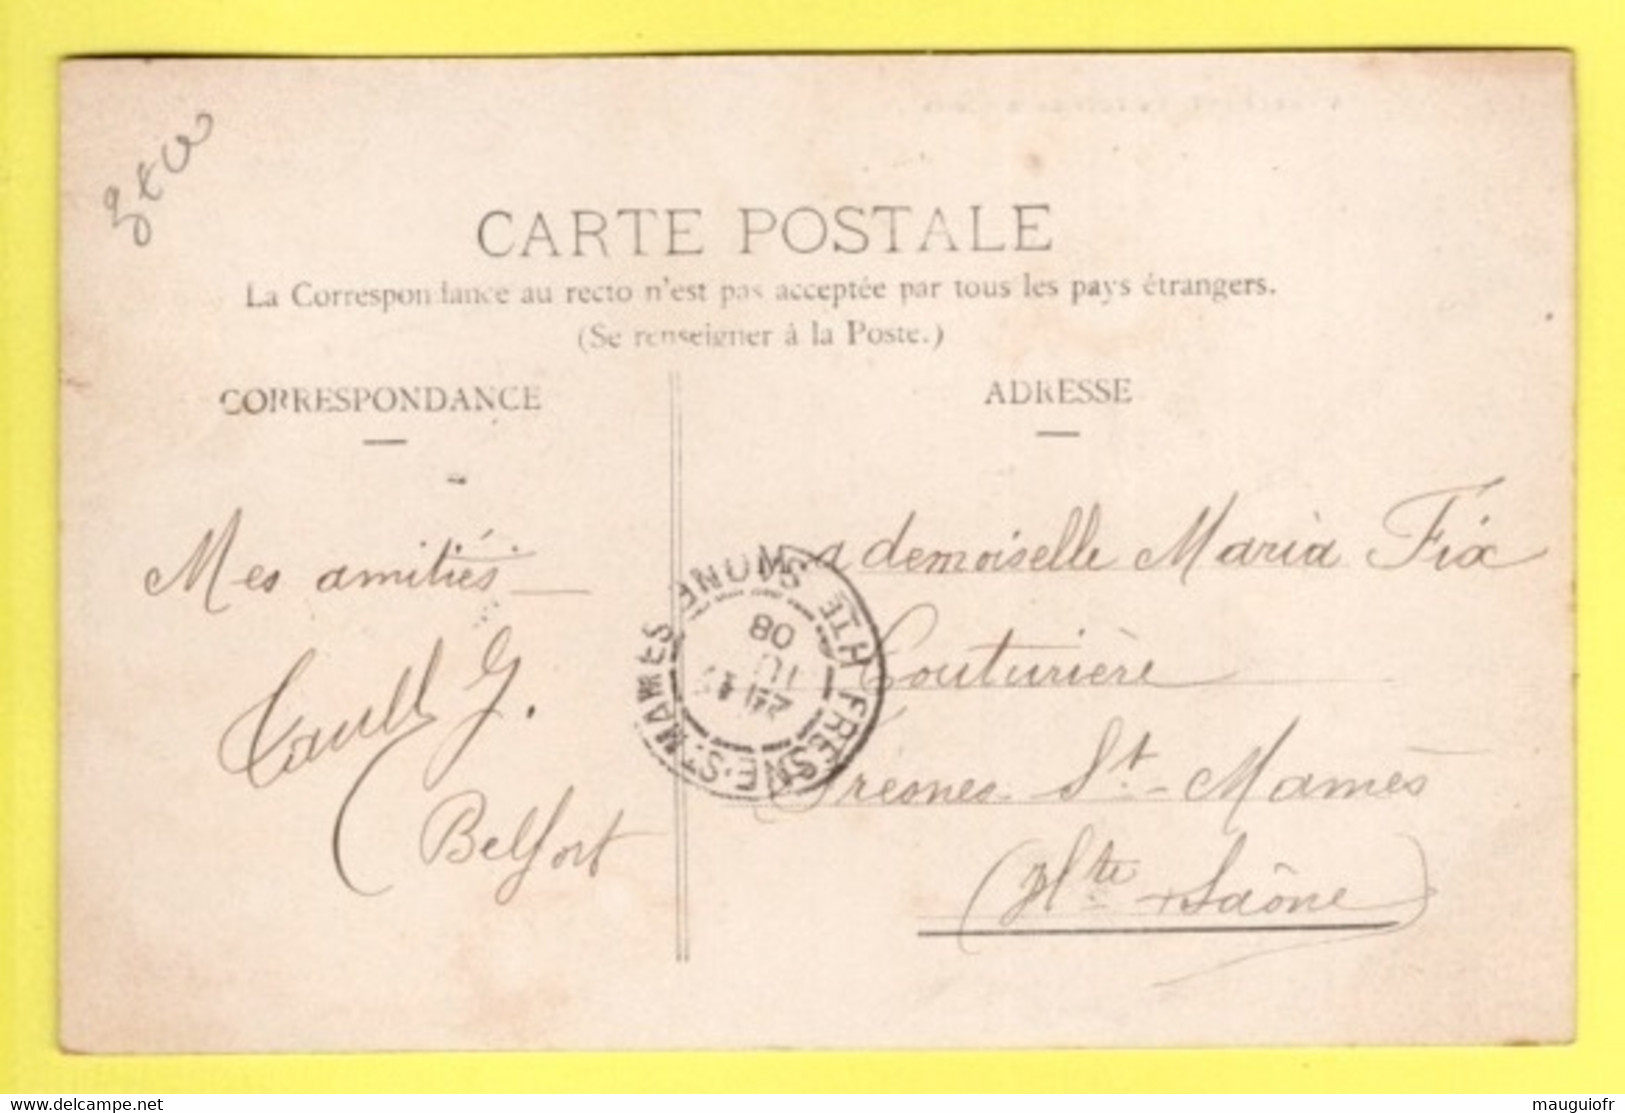 CARTE POSTALE
La Correspondance au recto n'est pas acceptée par tous les pays étrangers.
(Se renseigner à la Poste.)
CORRESPONDANCE
ADRESSE
Mes amitiés
G.
Belfort
Mademoiselle Maria Fix
Couturière
Fresnes St-Mamès
(Hte Saône)
FRESNE-ST-MAMES HTE SAONE
08
www.delcampe.net
mauguiofr